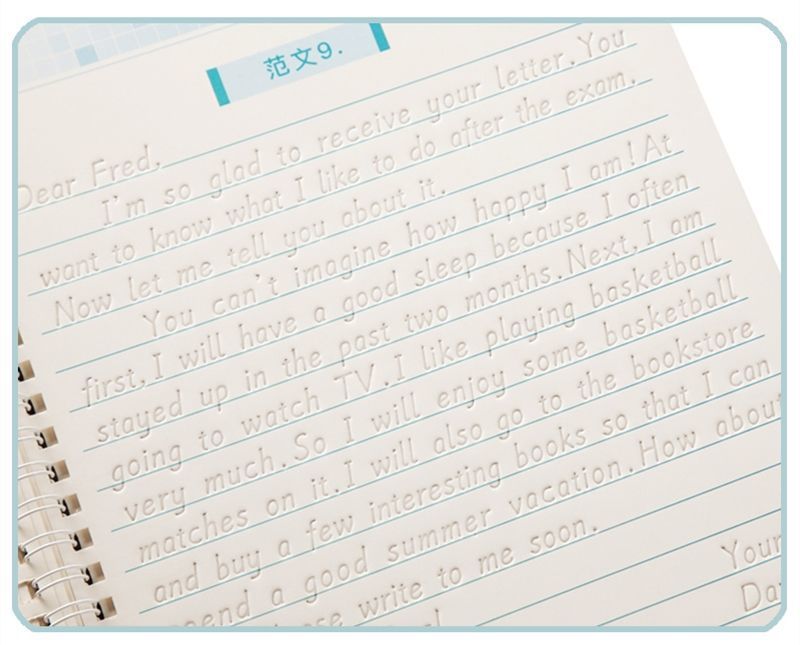 范文9.
Dear Fred,
I'm so glad to receive your letter. You
want to know what I like to do after the exam.
Now let me tell you about it.
You can't imagine how happy I am! At
first, I will have a good sleep because I often
stayed up in the past two months. Next, I am
going to watch TV. I like playing basketball
very much. So I will enjoy some basketball
matches on it. I will also go to the bookstore
and buy a few interesting books so that I can
a good summer vacation. How about
write to me soon.